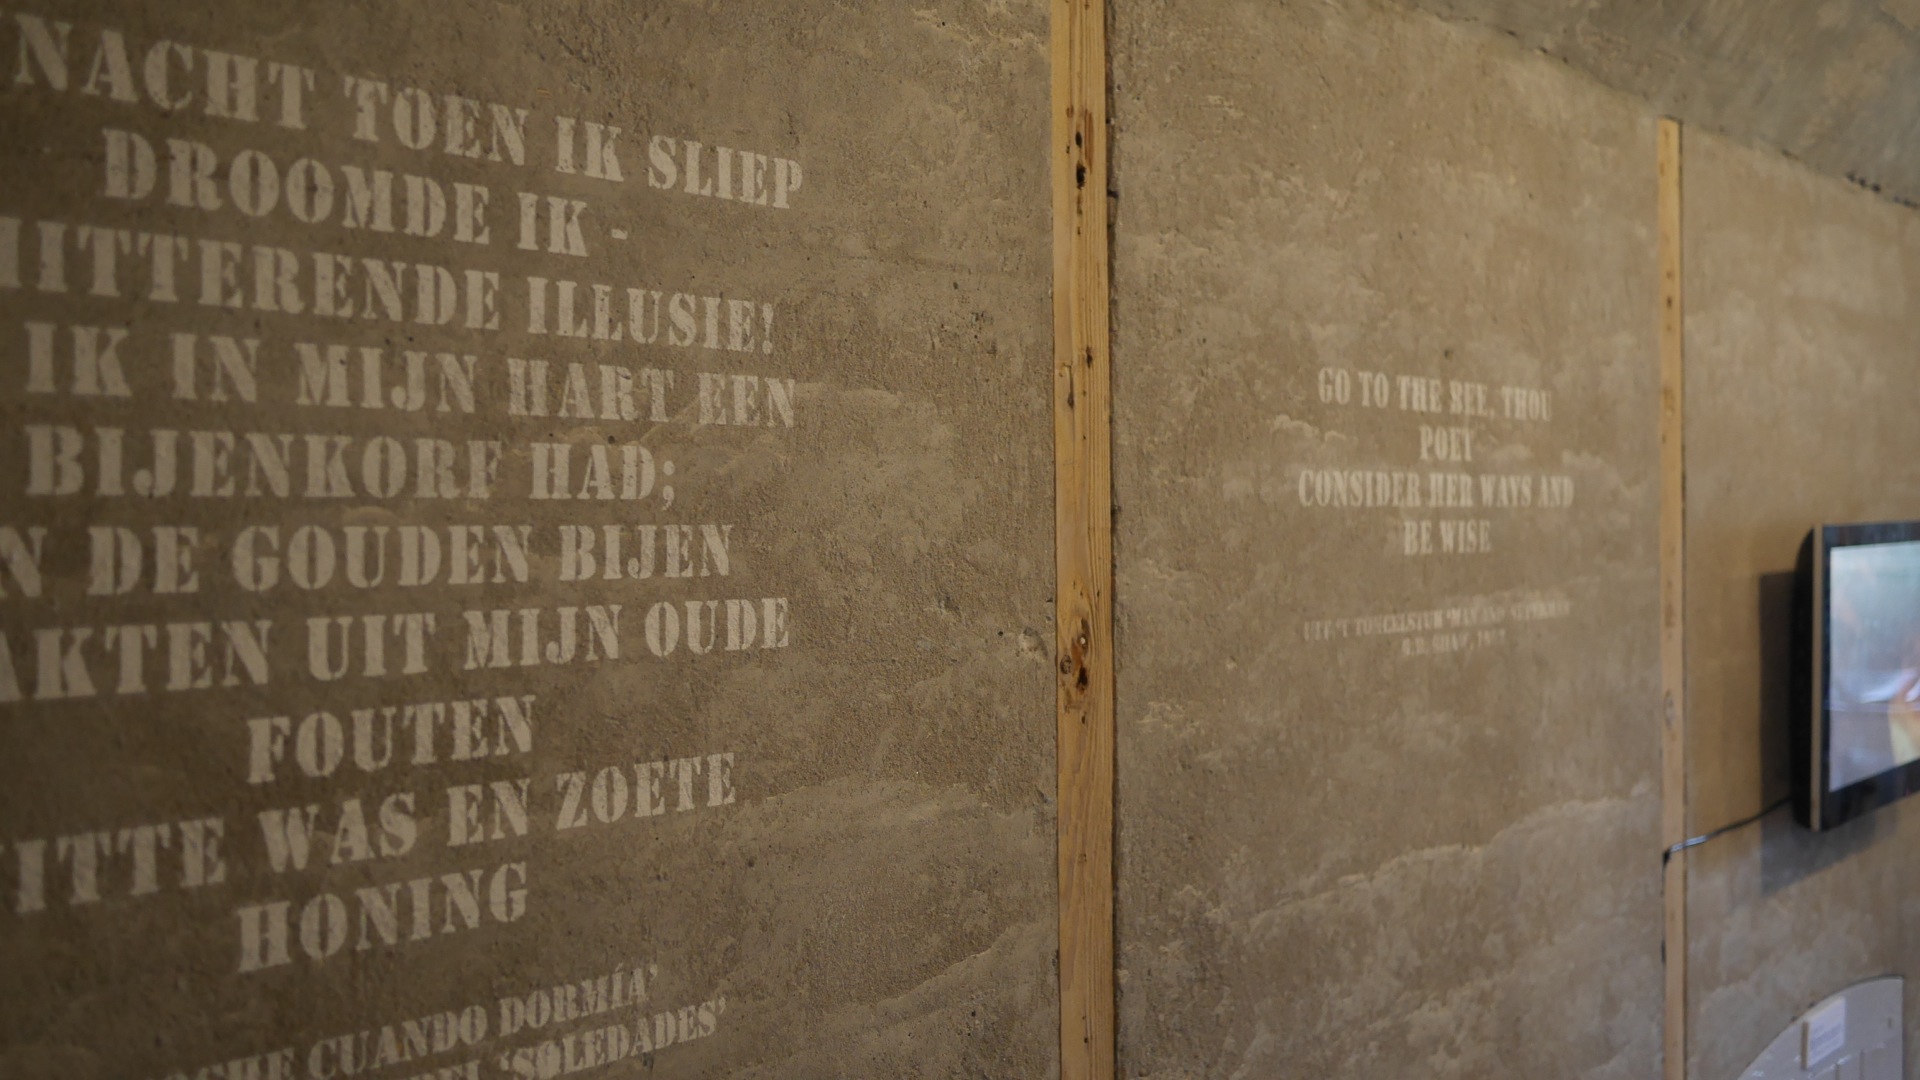 NACHT TOEN IK SLIEP
DROOMDE IK -
ITTERENDE ILLUSIE!
IK IN MIJN HART EEN
BIJENKORF HAD;
N DE GOUDEN BIJEN
AKTEN UIT MIJN OUDE
FOUTEN
ITTE WAS EN ZOETE
HONING
CUANDO DORMÍA'
'SOLEDADES'
GO TO THE BEE, THOU
POET
CONSIDER HER WAYS AND
BE WISE
UIT 'T TONEELSTUK 'MAN AND SUPERMAN'